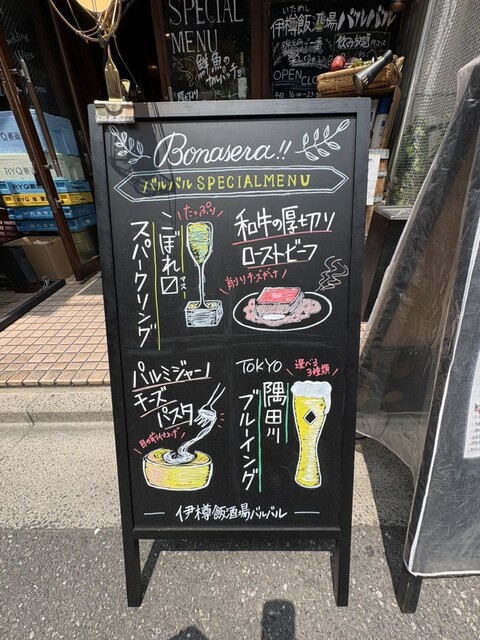 SPECIAL
MENU
鮮魚の
カルパッチョ
いためし
伊樽飯酒場バルバル
飲み放題
OPEN
Bonasera!!
バルバル SPECIALMENU
たっぷり
こぼれ口
スパークリング
和牛の厚切り
ローストビーフ
削りチーズがけ
パルミジャーノ
チーズ
パスタ
目の前仕上げ
TOKYO
選べる
3種類
隅田川
ブルーイング
伊樽飯酒場バルバル